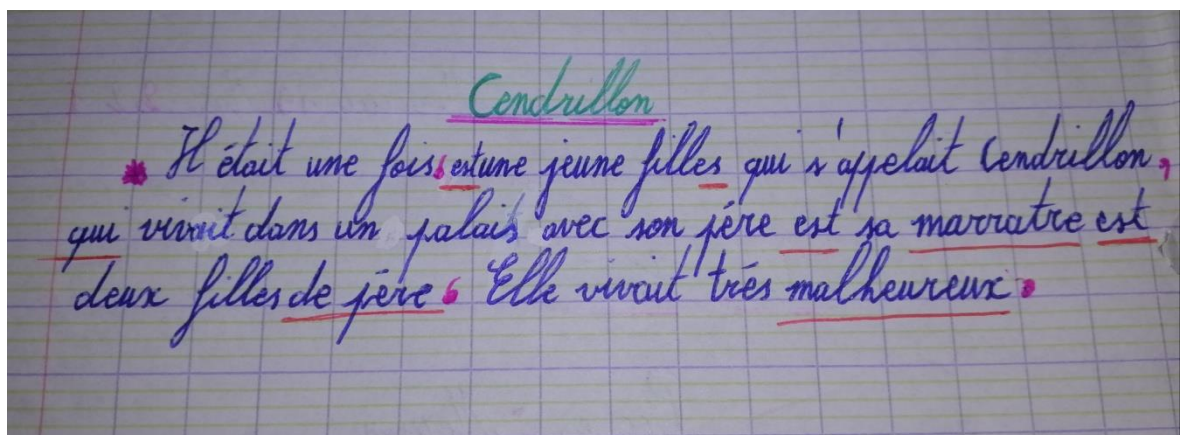 Cendrillon
* Il était une fois, est une jeune filles qui s'appelait Cendrillon,
qui vivait dans un palais avec son père est sa marratre est
deux filles de père. Elle vivait très malheureux.